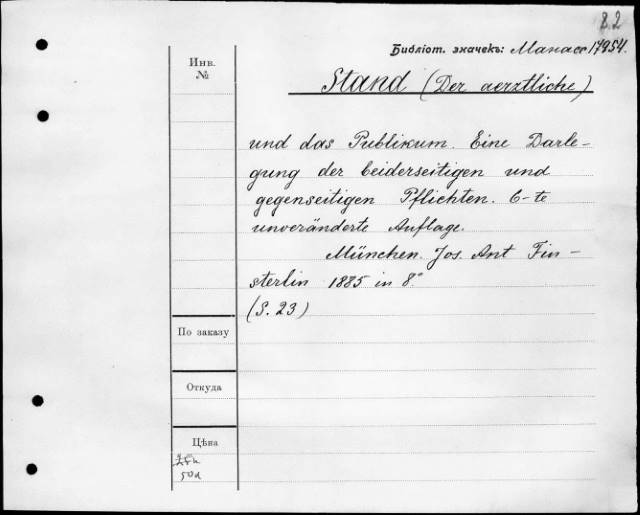 82
Библіот. значекъ: Манасс 17954.
Инв.
№
Stand (Der aerztliche)
und das Publikum. Eine Darle-
gung der beiderseitigen und
gegenseitigen Pflichten. 6-te
unveränderte Auflage.
München. Jos. Ant Fin-
sterlin 1885 in 8°
(S. 23)
По заказу
Откуда
Цѣна
50